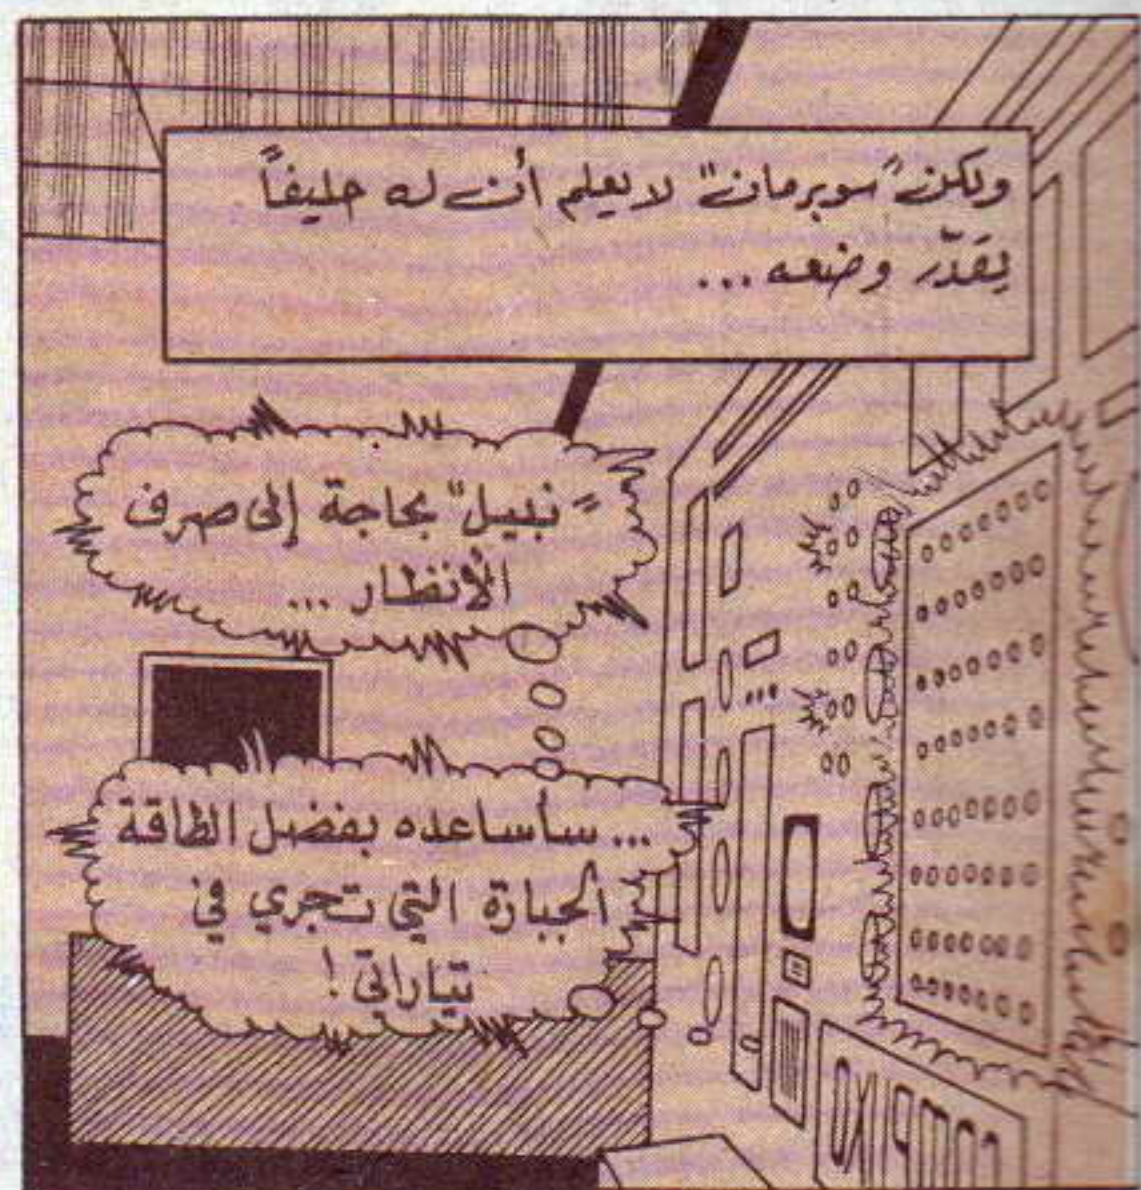 ولكن "سوبرمان" لا يعلم أن له حليفاً
يقدّر وضعه...
"نبيل" بحاجة إلى صرف
الأنظار ...
... سأساعده بفضل الطاقة
الجبارة التي تجري في
تياراتي !